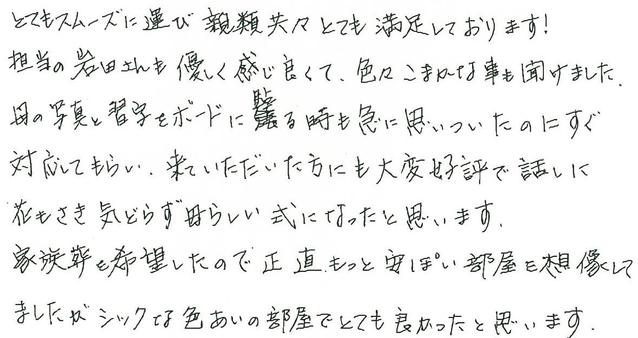 とてもスムーズに運び 親類共々とても満足しております!
担当の岩田さんも優しく感じ良くて、色々こまかな事も聞けました.
母の写真と習字をボードに貼る時も急に思いついたのにすぐ
対応してもらい、来ていただいた方にも大変好評で話しに
花もさき気どらず母らしい式になったと思います.
家族葬を希望したので正直もっと安ぽい部屋を想像して
ましたが シックな色あいの部屋でとても良かったと思います.